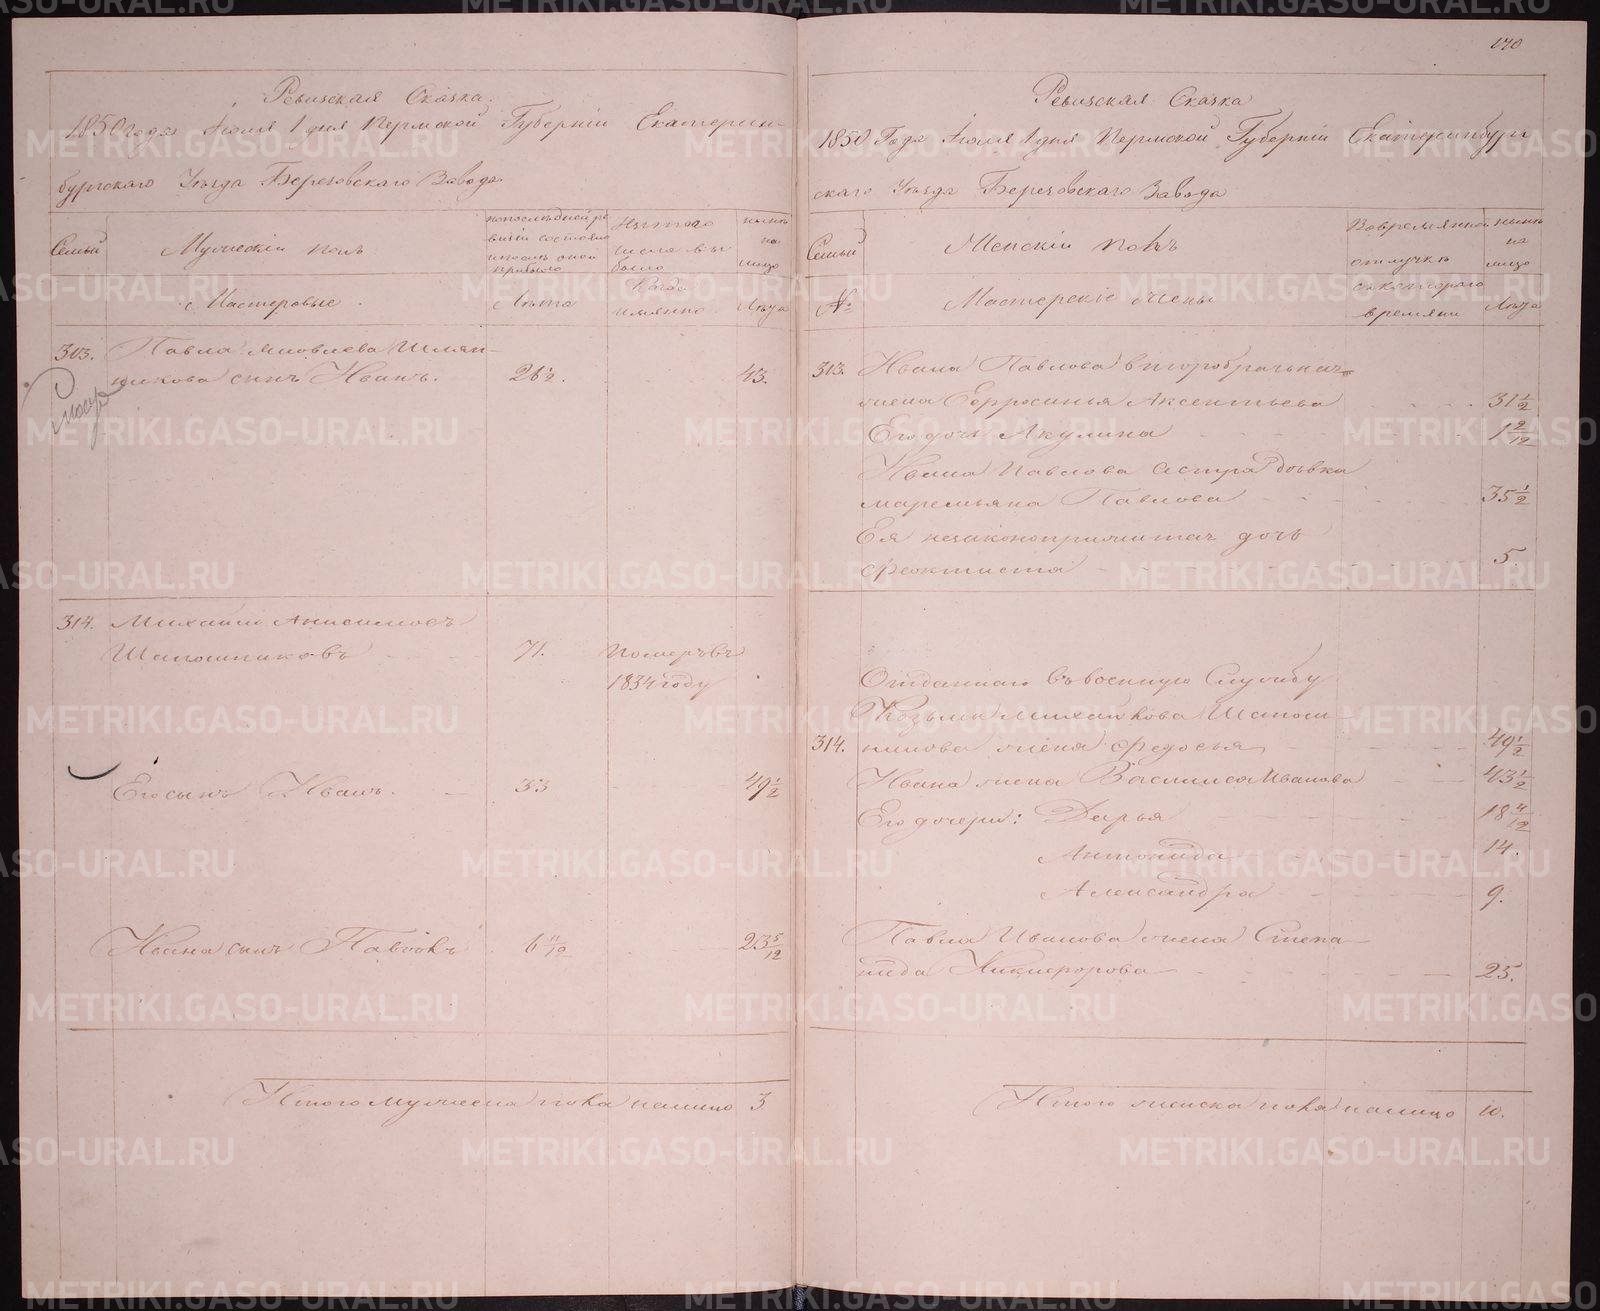 Ревизская Сказка.
1850 года Іюля 1 дня Пермской Губерніи Екатерин-
бургскаго Уезда Березовскаго Завода
Семьи
Мужескій полъ
Мастеровые
по последней ре
визіи состояло
и после оной
прибыло
Лѣта
Изъ того
числа вы
было
Когда
имянно
ныне
на
лицо
Лѣта
313. Павла Яковлева Шляп-
никова сынъ Иванъ. 26 1/2. 43.
314. Михайло Анисимовъ
Шапошниковъ 71. Померъ въ
1834 году
Его сынъ Иванъ. 33 49 1/2
Ивана сынъ Павелъ 6 11/12 23 5/12
Итого мужеска пола налицо 3.
170
Ревизская Сказка
1850 Года Іюля 1 дня Пермской Губерніи Екатеринбург
скаго Уезда Березовскаго Завода
Семьи
№
Женскій полъ
Мастерскіе жены
Во временной
отлучке
съ котораго
времяни
ныне
на
лицо
Лѣта
313. Ивана Павлова второбрачная
жена Ефросинья Аксентьева 31 1/2
Его дочь Акулина 1 2/12
Ивана Павлова сестра девка
Маремьяна Павлова 35 1/2
Ея незаконоприжитая дочь
Феоктиста 5.
Отданнаго въ военную Службу
Козьмы Михайлова Шапош-
314. никова жена Федосья 49 1/2
Ивана жена Василиса Иванова 43 1/2
Его дочери: Дарья 18 4/12
Антонида 14.
Александра 9.
Павла Иванова жена Степа-
нида Никифорова 25.
Итого женска пола налицо 10.
METRIKI.GASO-URAL.RU